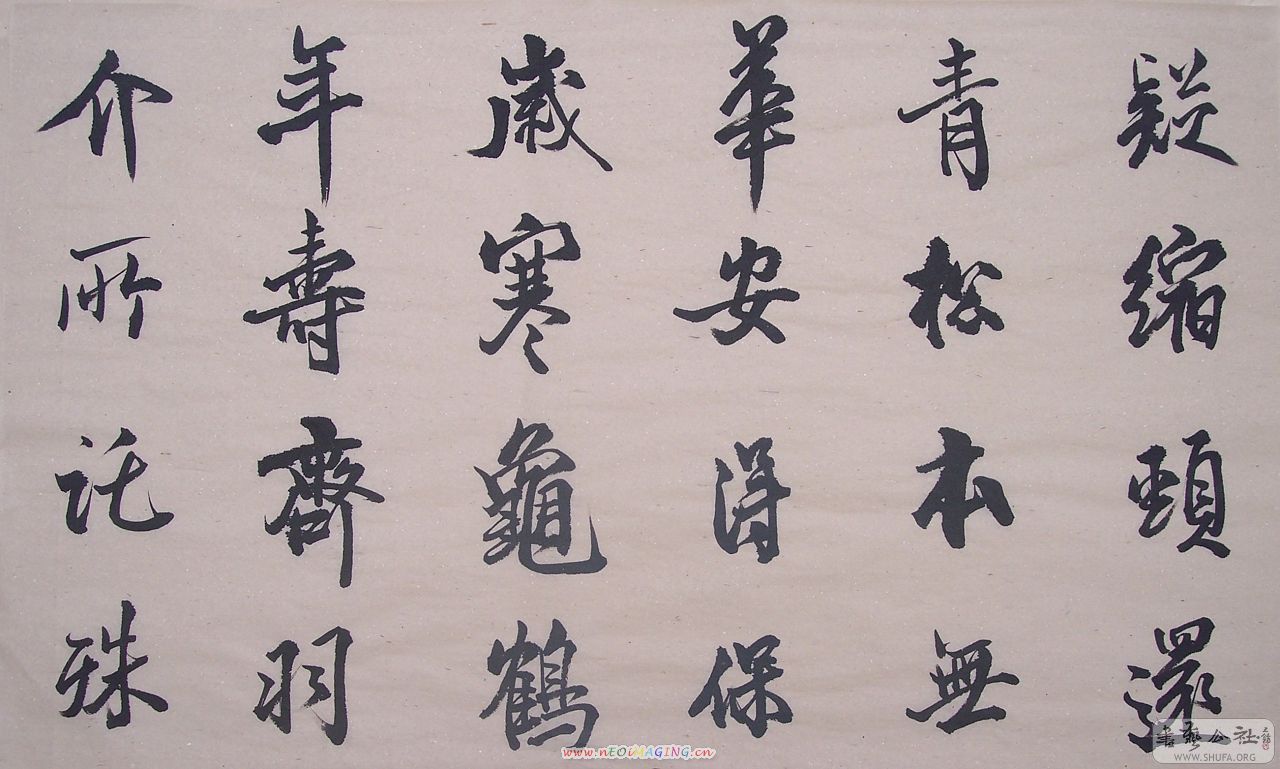 疑縮頸還
青松本無
華安得保
歲寒龜鶴
年壽齊羽
介所託殊
www.nEOiMAGING.cn
書藝公社
WWW.SHUFA.ORG